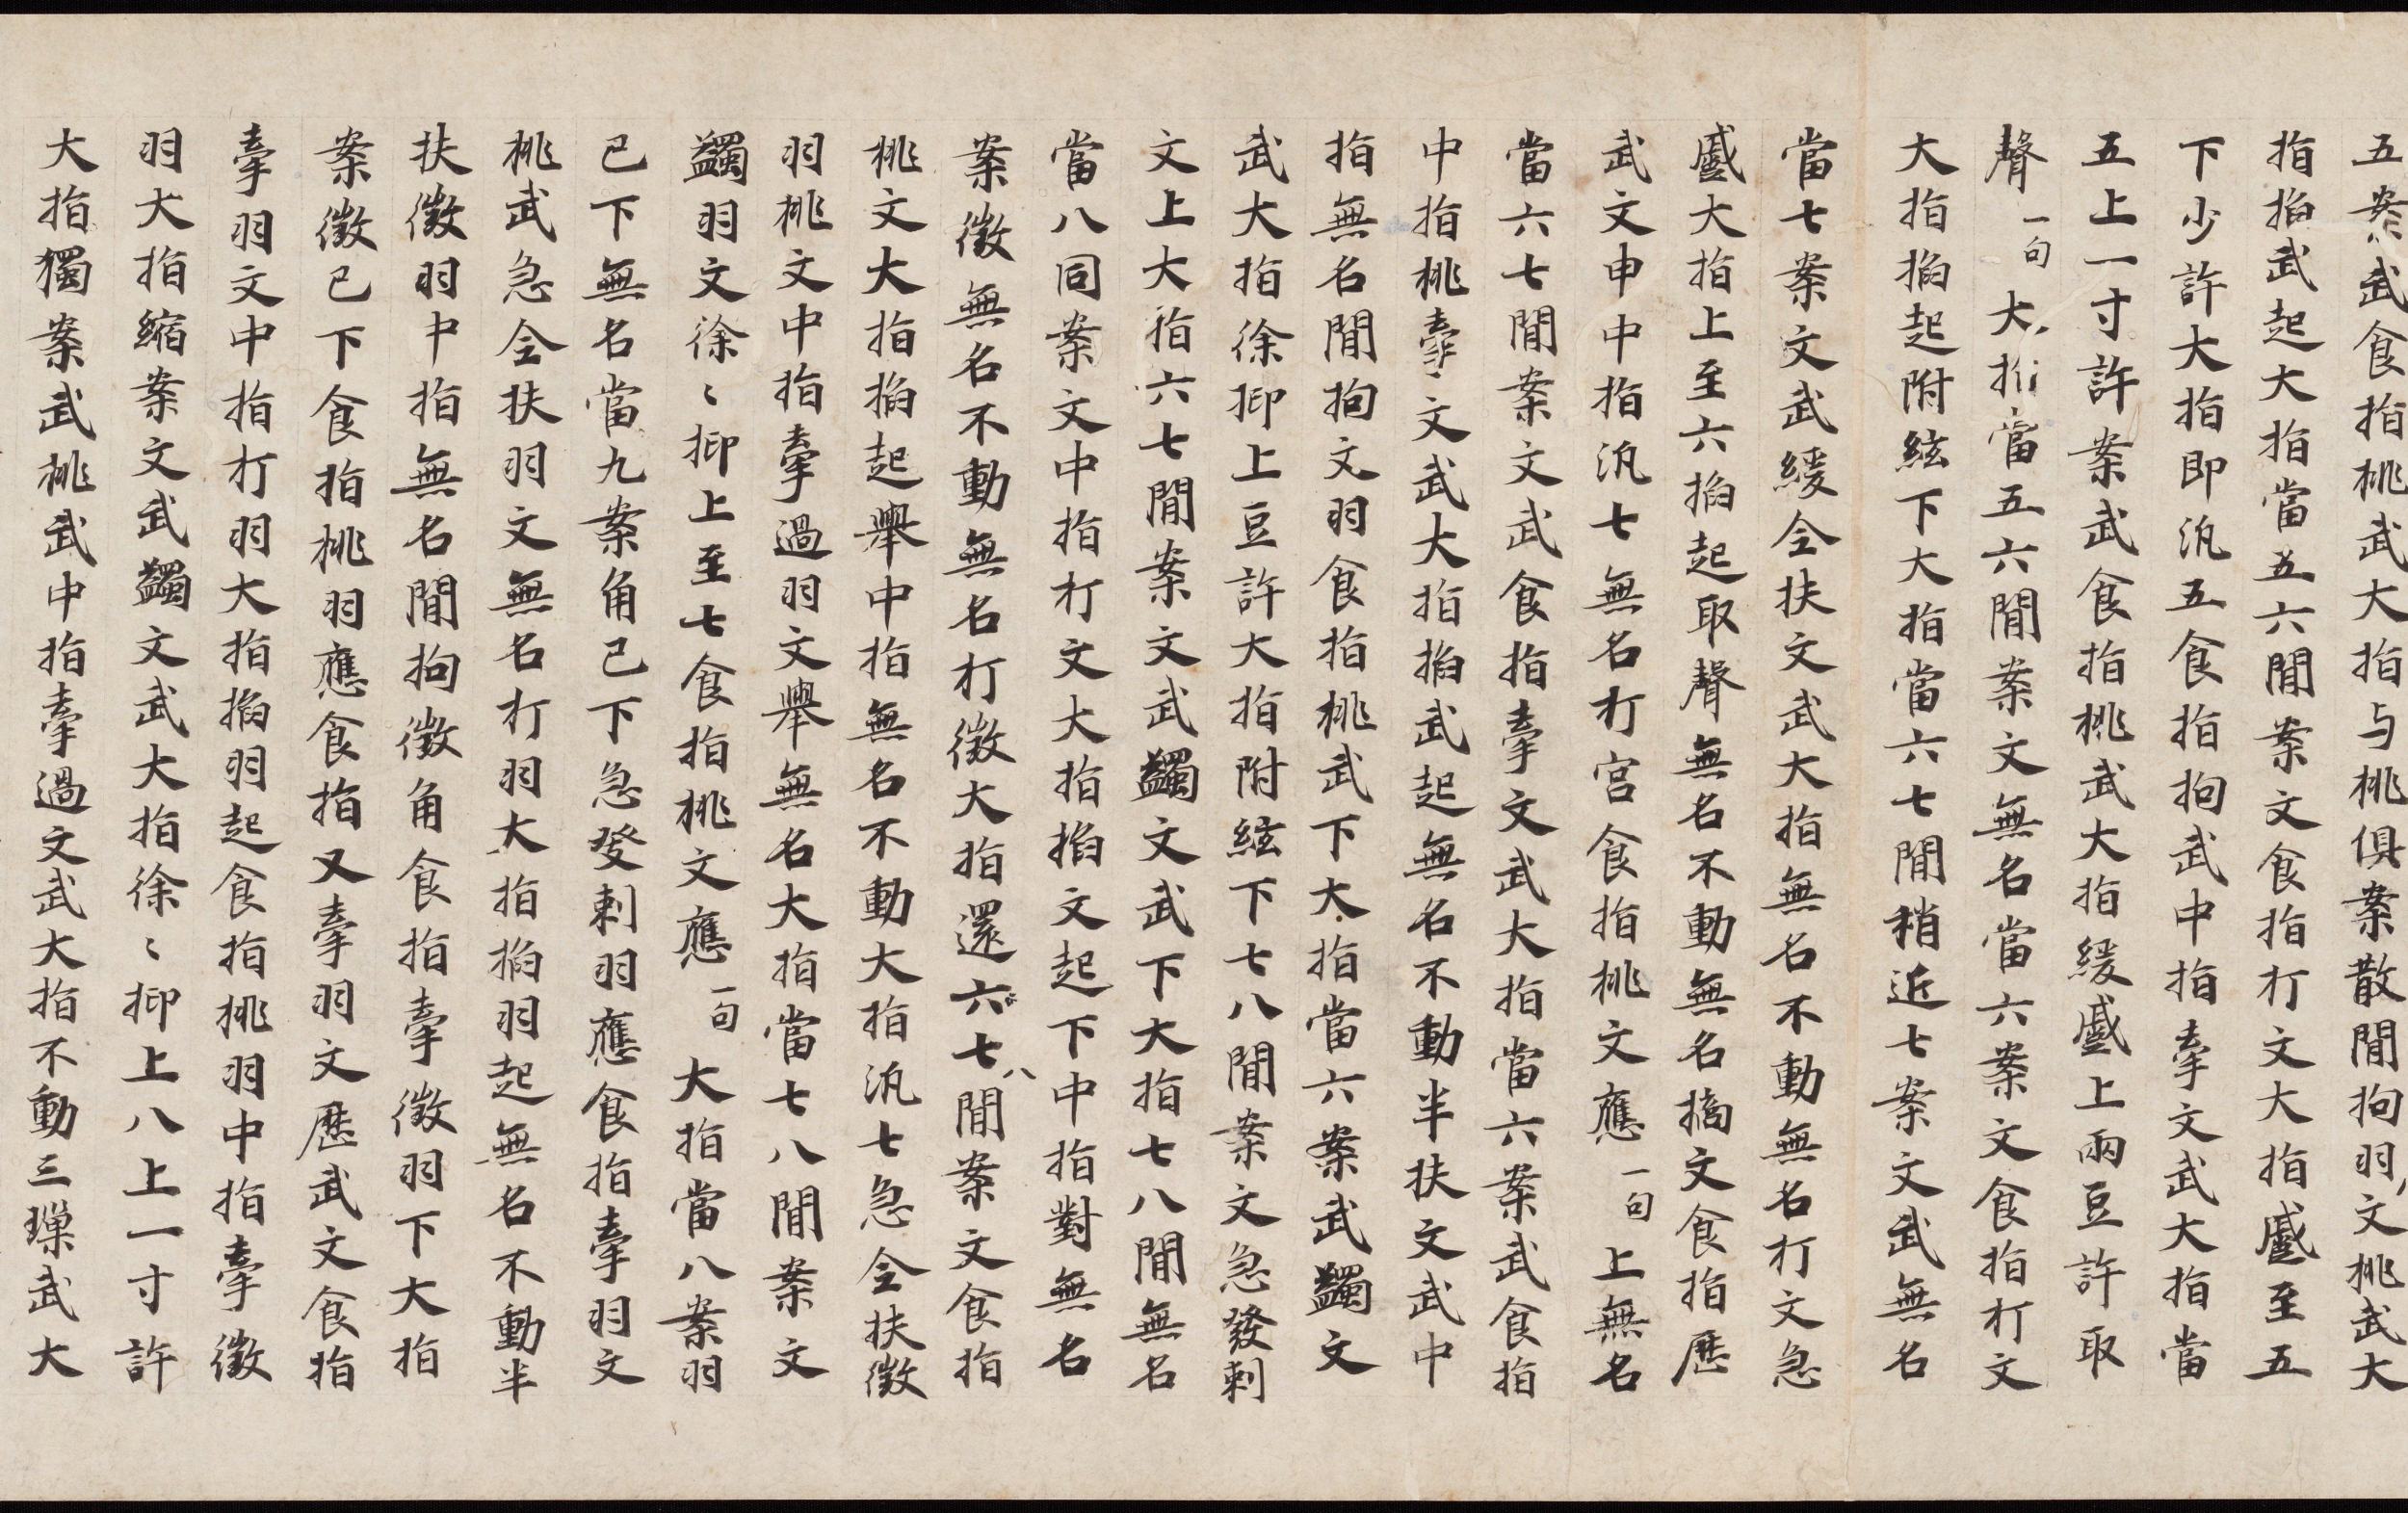 五案武食指桃武大指与桃俱案散間拘羽文桃武大
指掐武起大指當五六間案文食指打文大指蹙至五
下少許大指即汎五食指拘武中指牽文武大指當
五上一寸許案武食指桃武大指緩蹙上兩豆許取
聲一句大指當五六間案文無名當六案文食指打文
大指掐起附絃下大指當六七間稍近七案文武無名
當七案文武緩全扶文武大指無名不動無名打文急
蹙大指上至六掐起取聲無名不動無名擿文食指歷
武文申中指汎七無名打宮食指桃文應一句上無名
當六七間案文武食指牽文武大指當六案武食指
中指桃牽文武大指掐武起無名不動半扶文武中
指無名間拘文羽食指桃武下大指當六案武蠲文
武大指徐抑上豆許大指附絃下七八間案文急發刺
文上大指六七間案文武蠲文武下大指七八間無名
當八同案文中指打文大指掐文起下中指對無名
案徵無名不動無名打徵大指還六七八間案文食指
桃文大指掐起舉中指無名不動大指汎七急全扶徵
羽桃文中指牽過羽文舉無名大指當七八間案文
蠲羽文徐〻抑上至七食指桃文應一句大指當八案羽
已下無名當九案角已下急發刺羽應食指牽羽文
桃武急全扶羽文無名打羽大指掐羽起無名不動半
扶徵羽中指無名間拘徵角食指牽徵羽下大指
案徵已下食指桃羽應食指又牽羽文歷武文食指
牽羽文中指打羽大指掐羽起食指桃羽中指牽徵
羽大指縮案文武蠲文武大指徐〻抑上八上一寸許
大指獨案武桃武中指牽過文武大指不動三璅武大